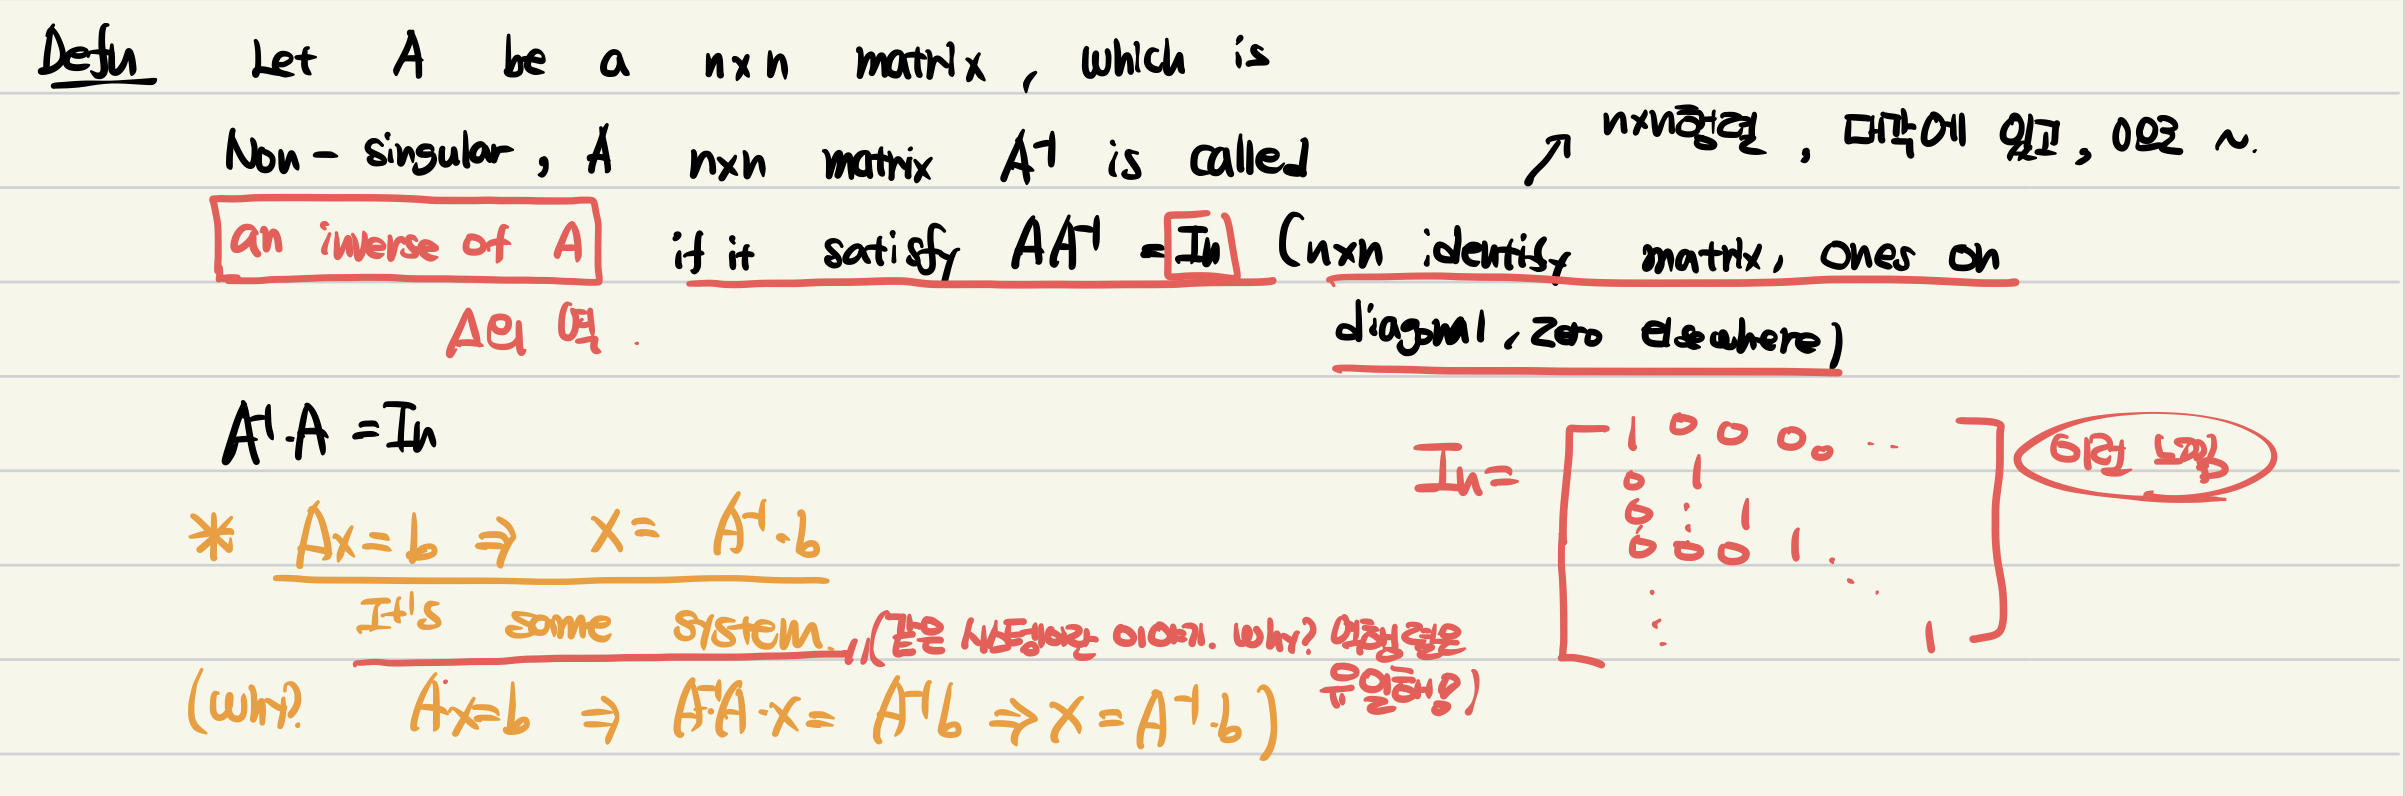 Defn Let A be a nxn matrix, which is
Non-singular, A nxn matrix A⁻¹ is called
nxn항등행렬, 대각에 있고, 0으로 ~.
an inverse of A if it satisfy AA⁻¹ = In (nxn identity matrix, ones on
A의 역.
diagonal, zero elsewhere)
A⁻¹·A = In
In = [ 1 0 0 0 0 ...
0 1
0 : 1
0 0 0 1 . . .
1 ]
이런 느낌
* Ax = b ⇒ x = A⁻¹·b
It's some system. (같은 시스템이야. why? 역행렬은
유일해!)
(why? A·x = b ⇒ A⁻¹A·x = A⁻¹b ⇒ x = A⁻¹·b)